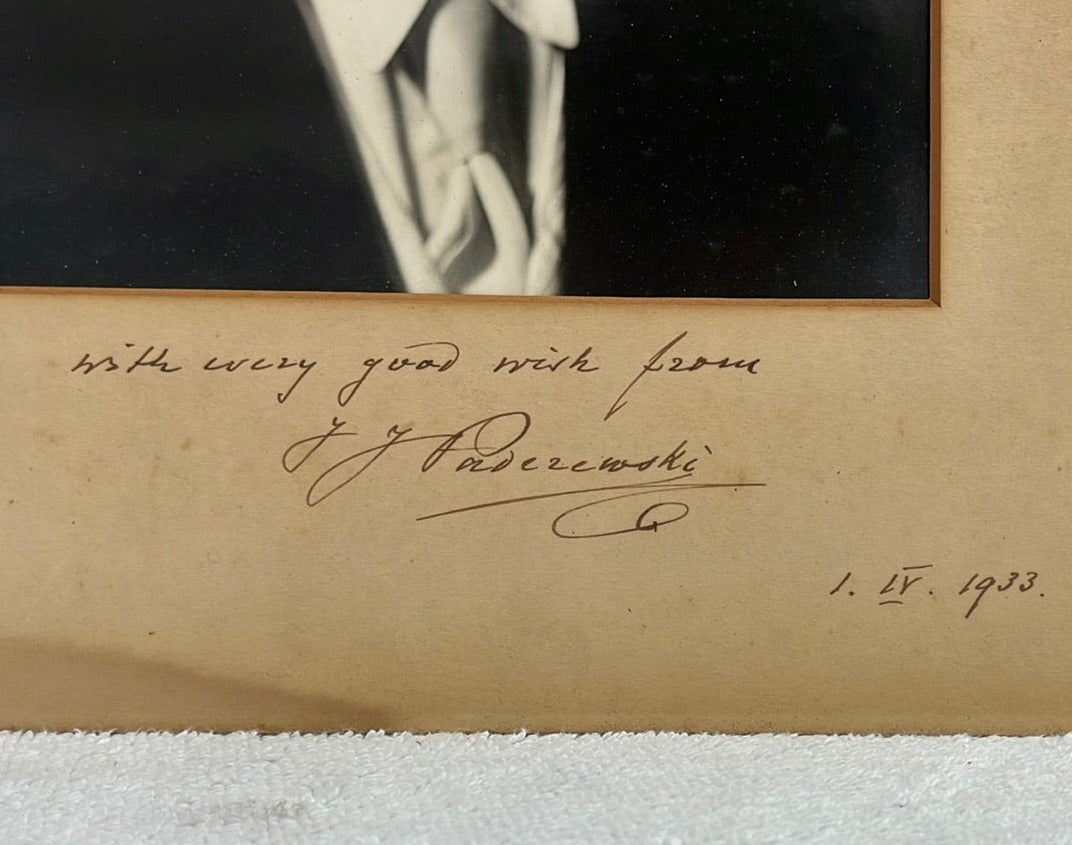 with every good wish from
J J Paderewski
1. IV. 1933.